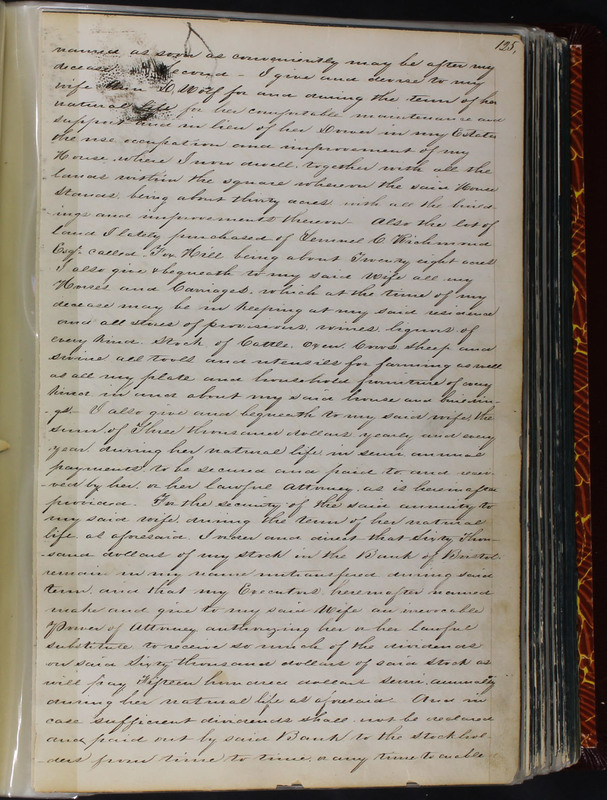 125,
named as soon as conveniently may be after my
decease Second - I give and devise to my
wife D. Wolf for and during the term of her
natural life for her comfortable maintenance and
support and in lieu of her Dower in my Estate
the use occupation and improvement of my
House, where I now dwell, together with all the
lands within the square whereon the said House
Stands, being about thirty acres with all the build-
ings and improvements thereon - Also the lot of
land I lately purchased of Lemuel C. Richmond
Esq. called Fox Hill being about Twenty eight acres
I also give & bequeath to my said Wife all my
Horses and Carriages, which at the time of my
decease may be in keeping at my said residence
and all stores of provisions, wines, liquors of
every kind, Stock of Cattle, Oxen, Cows, Sheep and
swine all tools and utensils for farming as well
as all my plate and household furniture of any
kind in and about my said house and buildin-
gs - I also give and bequeath to my said wife, the
sum of Three thousand dollars yearly and every
year during her natural life, in semi annual
payments, to be secured and paid to and recei-
ved by her, or her lawful Attorney, as is hereinafter
provided. For the security of the said annuity to
my said wife, during the term of her natural
life as aforesaid. I order and direct that Sixty Thou-
sand dollars of my stock in the Bank of Bristol
remain in my name untransfered during said
term, and that my Executors, hereinafter named
make and give to my said Wife an irrevocable
Power of Attorney authorizing her or her lawful
substitute to receive so much of the dividends
on said Sixty thousand dollars of said stock as
will pay Fifteen hundred dollars semi annually
during her natural life as aforesaid. And in
case sufficient dividends shall not be declared
and paid out by said Bank to the stockhol-
ders from time to time, or any time to enable